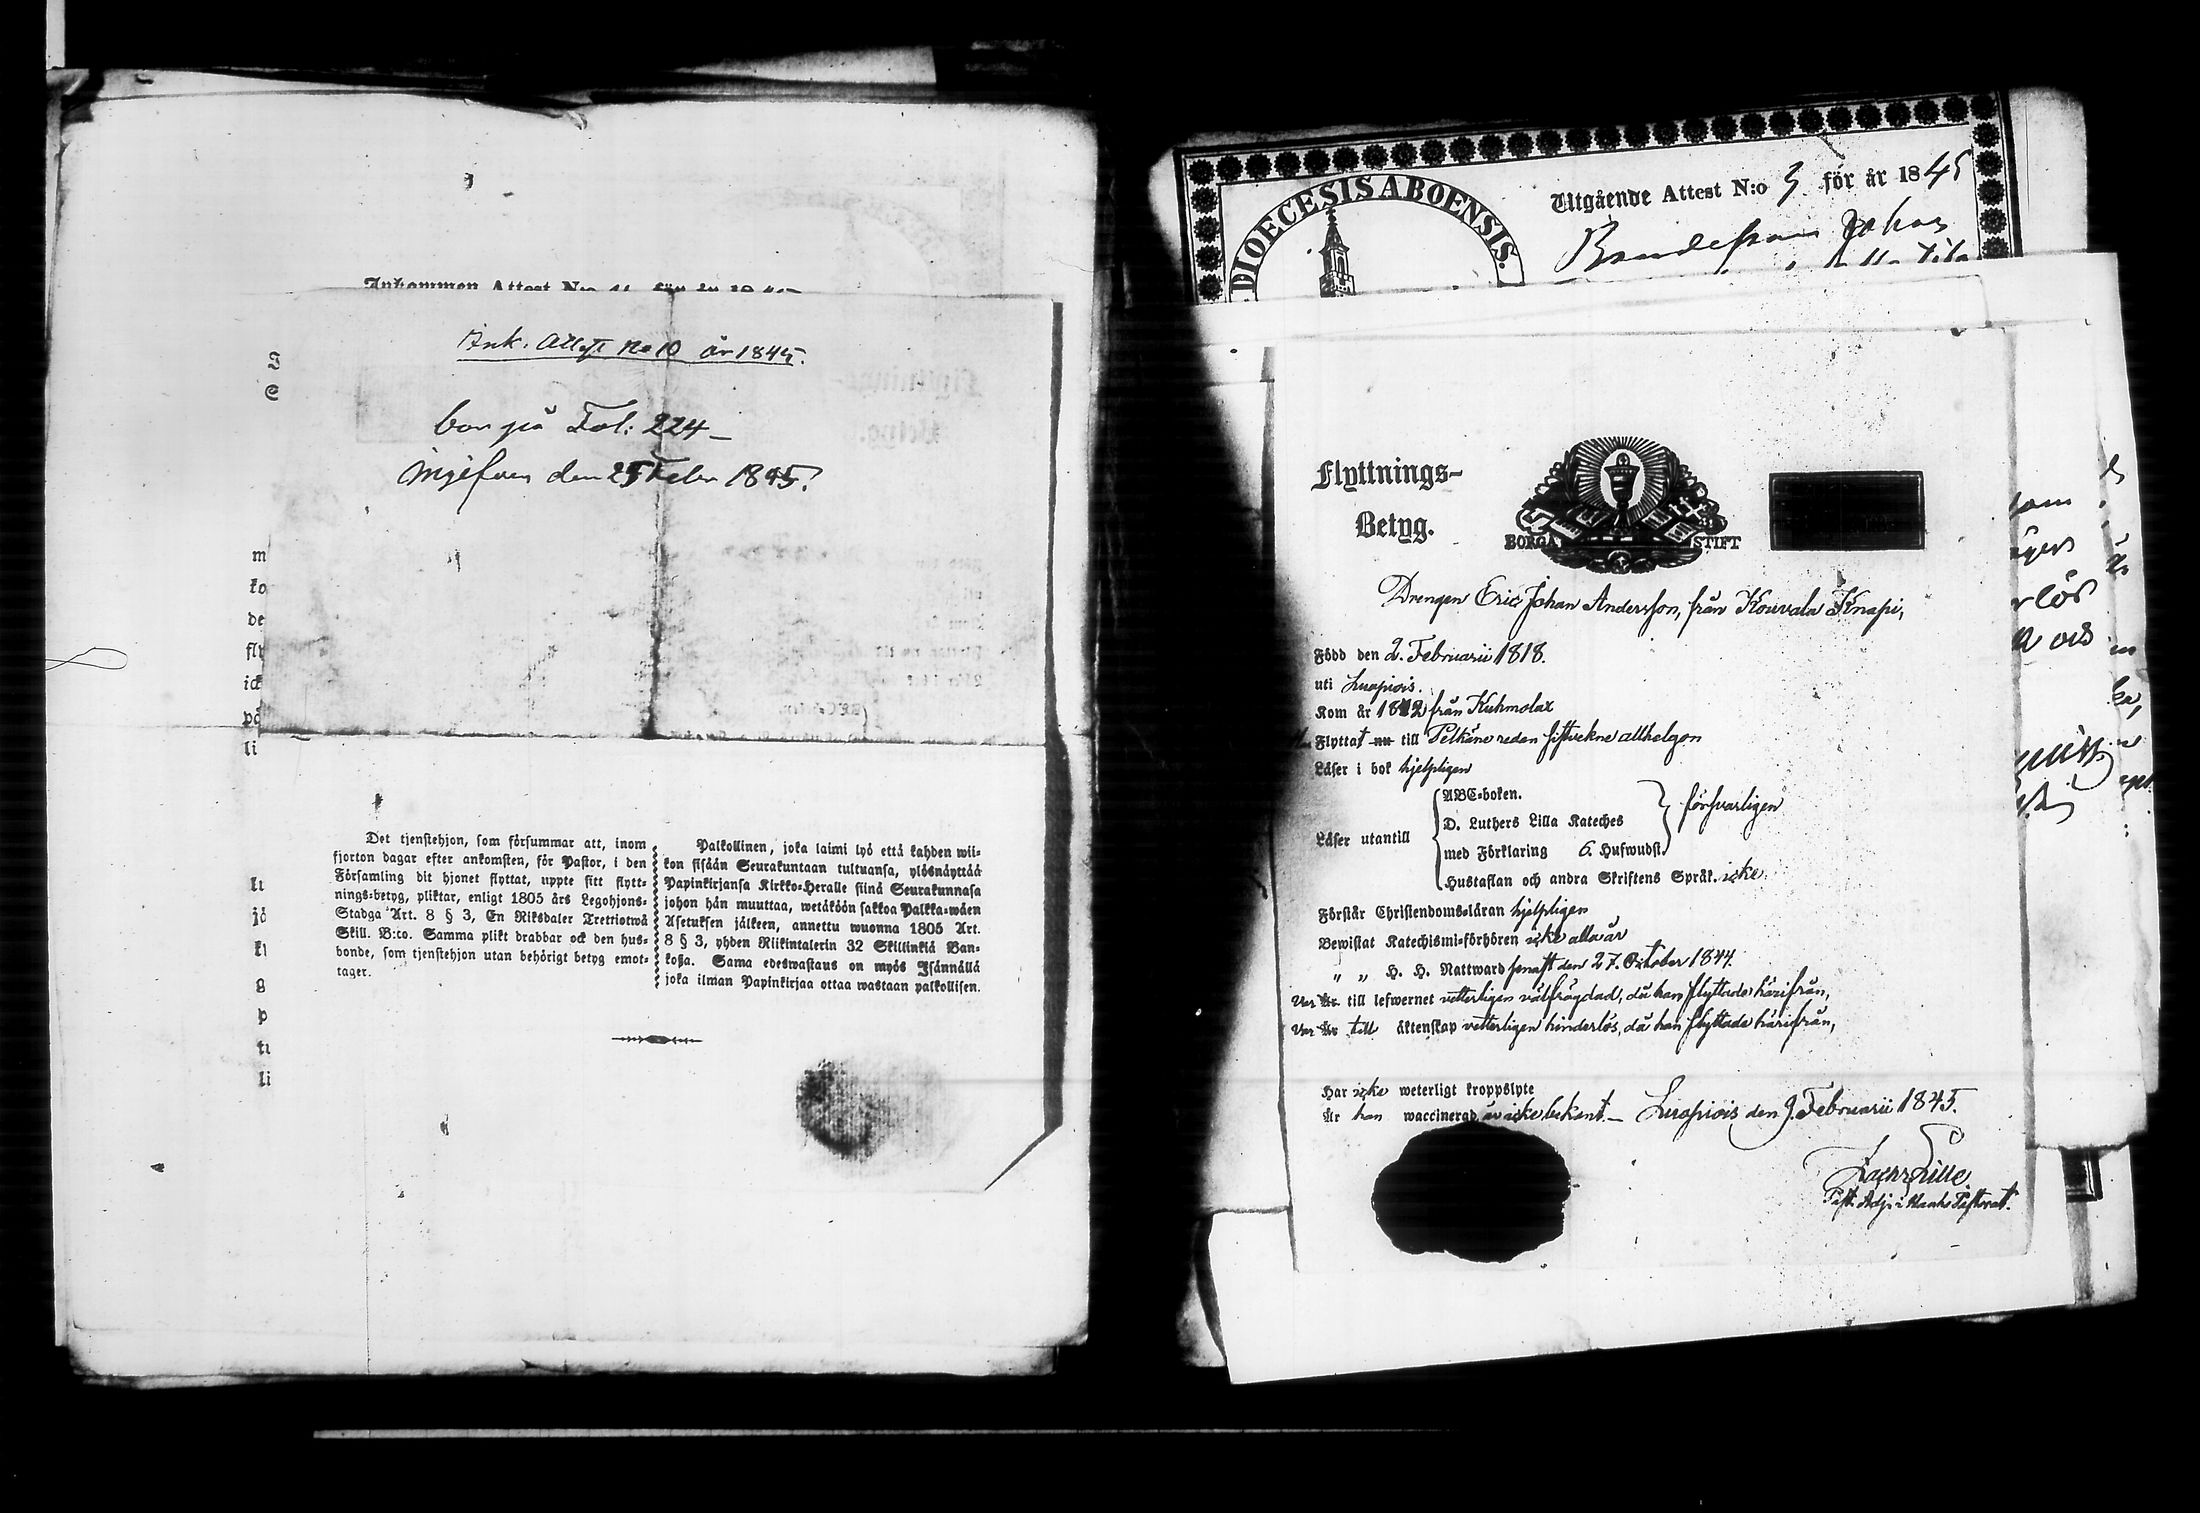 Ankommen Attest N:o 11 för år 1845
Ank. Attest No 10 år 1845.
bor på Fol: 224 –
ingifven den 25 Febr 1845.
m
ko
de
fly
ick
på
li
Det tjenstehjon, som försummar att, inom
fjorton dagar efter ankomsten, för Pastor, i den
Församling dit hjonet flyttat, uppte sitt flytt-
nings-betyg, pliktar, enligt 1805 års Legohjons-
Stadga Art. 8 § 3, En Riksdaler Trettiotwå
Skill. B:co. Samma plikt drabbar ock den hus-
bonde, som tjenstehjon utan behörigt betyg emot-
tager.
Palkollinen, joka laimi lyö että kahden wii-
kon sisään Seurakuntaan tultuansa, ylösnäyttää
Papinkirjansa Kirkko-Heralle siinä Seurakunnasa
johon hän muuttaa, wetäköön sakkoa Palkka-wäen
Asetuksen jälkeen, annettu wuonna 1805 Art.
8 § 3, yhden Riikintalerin 32 Skillinkiä Ban-
koßa. Sama edeswastaus on myös Isännällä
joka ilman Papinkirjaa ottaa wastaan palkollisen.
DIOECESIS ABOENSIS.
Utgående Attest N:o 3 för år 1845
Johan
Flyttnings-
Betyg.
BORGÅ STIFT
Drengen Eric Johan Andersson, från Kouvala Knapi,
Född den 2. Februarii 1818.
uti Luopiois.
Kom år 1842 från Kuhmolax
Flyttat nu till Pelkäne redan sistvekne allhelgon
Läser i bok hjelpligen
Läser utantill
ABC-boken.
D. Luthers Lilla Kateches
med Förklaring 6. Hufwudst.
försvarligen
Hustaflan och andra Skriftens Språk. icke
Förstår Christendoms-läran hjelpligen
Bewistat Katechismi-förhören icke alla år
" " H. H. Nattward senast den 27. October 1844.
Var Är till lefwernet vetterligen välfrägdad, då han flyttade härifrån,
Var Är till äktenskap vetterligen hinderlös, då han flyttade härifrån,
Har icke weterligt kroppslyte
Är han waccinerad är icke bekant. – Luopiois den 9. Februarii 1845.
Lille
Past. Adj: i Pastorat.